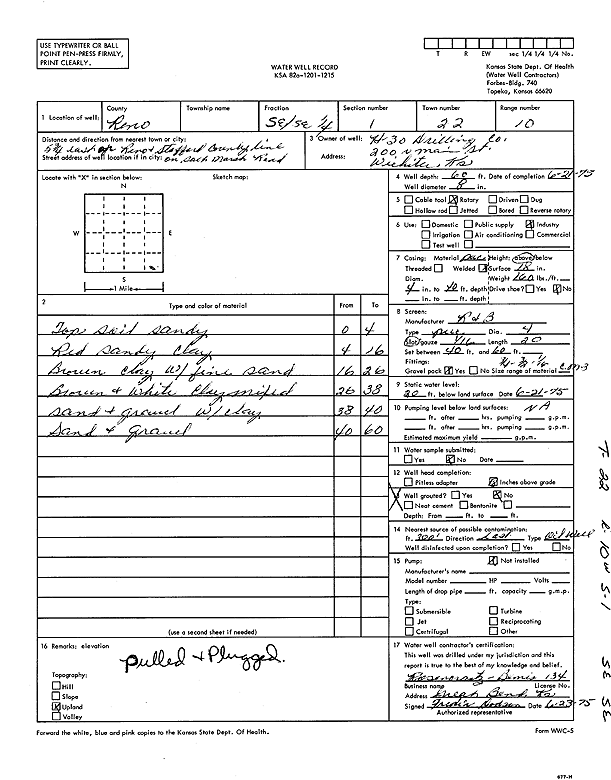 USE TYPEWRITER OR BALL
POINT PEN-PRESS FIRMLY,
PRINT CLEARLY.
WATER WELL RECORD
KSA 82a-1201-1215
T R EW sec 1/4 1/4 1/4 No.
Kansas State Dept. Of Health
(Water Well Contractors)
Forbes-Bldg. 740
Topeka, Kansas 66620
1 Location of well: County Reno Township name Fraction SE/SE 1/4 Section number 1 Town number 22 Range number 10
Distance and direction from nearest town or city:
East of Reno & Stafford County Line
Street address of well location if in city: on Salt Marsh Road
3 Owner of well: H-30 Drilling Co.
Address: 200 N main St.
Wichita, Ks
Locate with "X" in section below:
N
W E
S
1 Mile
Sketch map:
4 Well depth: 60 ft. Date of completion 6-21-75
Well diameter 8 in.
5 Cable tool X Rotary Driven Dug
Hollow rod Jetted Bored Reverse rotary
6 Use: Domestic Public supply X Industry
Irrigation Air conditioning Commercial
Test well
7 Casing: Material Height: above/below
Threaded Welded X Surface 18 in.
Diam. Weight 160 lbs./ft.
4 in. to 40 ft. depth Drive shoe? Yes X No
in. to ft. depth
2 Type and color of material From To
Top soil sandy 0 4
Red sandy clay 4 16
Brown clay w/ fine sand 16 26
Brown & White Clay mixed 26 38
sand & gravel w/clay 38 40
Sand & Gravel 40 60
(use a second sheet if needed)
8 Screen:
Manufacturer R & B
Type pvc Dia. 4
Slot/gauze 1/16 Length 20
Set between 40 ft. and 60 ft.
Fittings:
Gravel pack X Yes No Size range of material
9 Static water level:
20 ft. below land surface Date 6-21-75
10 Pumping level below land surfaces: NA
ft. after hrs. pumping g.p.m.
ft. after hrs. pumping g.p.m.
Estimated maximum yield g.p.m.
11 Water sample submitted:
Yes X No Date
12 Well head completion:
Pitless adapter X Inches above grade
Well grouted? Yes X No
Neat cement Bentonite
Depth: From ft. to ft.
14 Nearest source of possible contamination:
ft. 300' Direction East Type Oil Well
Well disinfected upon completion? Yes No
15 Pump: X Not installed
Manufacturer's name
Model number HP Volts
Length of drop pipe ft. capacity g.m.p.
Type:
Submersible Turbine
Jet Reciprocating
Centrifugal Other
16 Remarks: elevation
Pulled & Plugged.
Topography:
Hill
Slope
X Upland
Valley
17 Water well contractor's certification:
This well was drilled under my jurisdiction and this
report is true to the best of my knowledge and belief.
Rosencrantz-Bemis 134
Business name License No.
Address Great Bend Ks
Signed Date 6-23-75
Authorized representative
Forward the white, blue and pink copies to the Kansas State Dept. Of Health.
Form WWC-5
677-H
T-22 R 10W S-1 SE SE